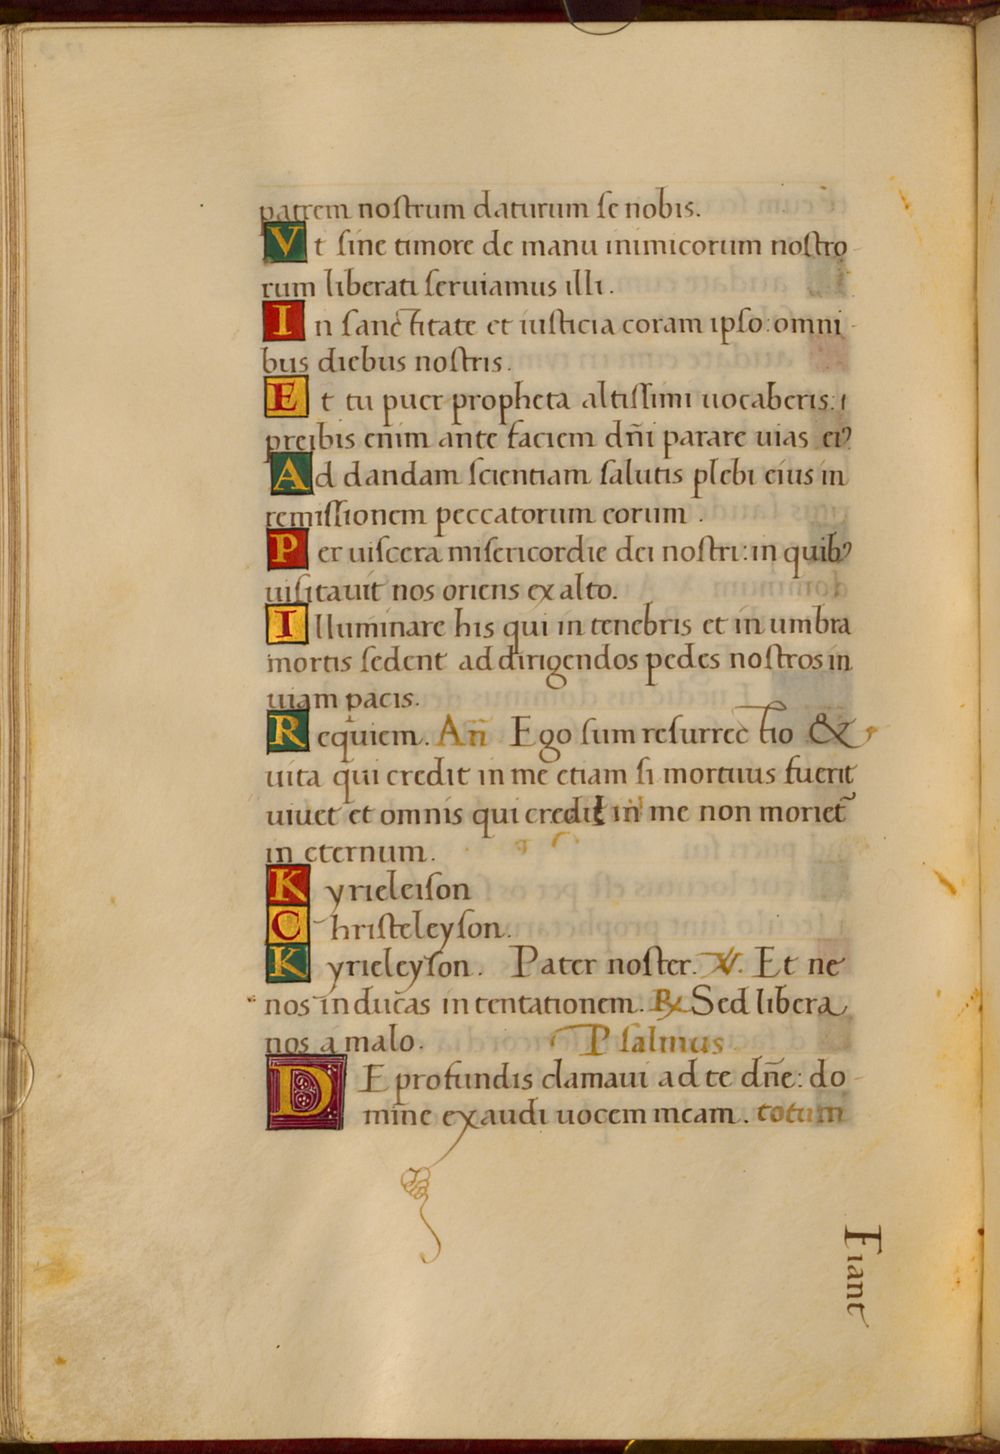 patrem nostrum daturum se nobis.
Vt sine timore de manu inimicorum nostro
rum liberati seruiamus illi.
In sanctitate et iusticia coram ipso: omni
bus diebus nostris.
Et tu puer propheta altissimi uocaberis: 
preibis enim ante faciem dñi parare uias eiꝰ
Ad dandam scientiam salutis plebi eius in
remissionem peccatorum eorum.
Per uiscera misericordie dei nostri: in quibꝰ
uisitauit nos oriens ex alto.
Illuminare his qui in tenebris et in umbra
mortis sedent ad dirigendos pedes nostros in
uiam pacis.
Requiem. Añ Ego sum resurrectio &
uita qui credit in me etiam si mortuus fuerit
uiuet et omnis qui credit in me non moriet᷑
in eternum.
Kyrieleison
Christeleyson.
Kyrieleyson. Pater noster. ℣. Et ne
nos inducas in tentationem. ℞ Sed libera
nos a malo. Psalmus
DE profundis clamaui ad te dñe: do
mine exaudi uocem meam. totum
Fiant